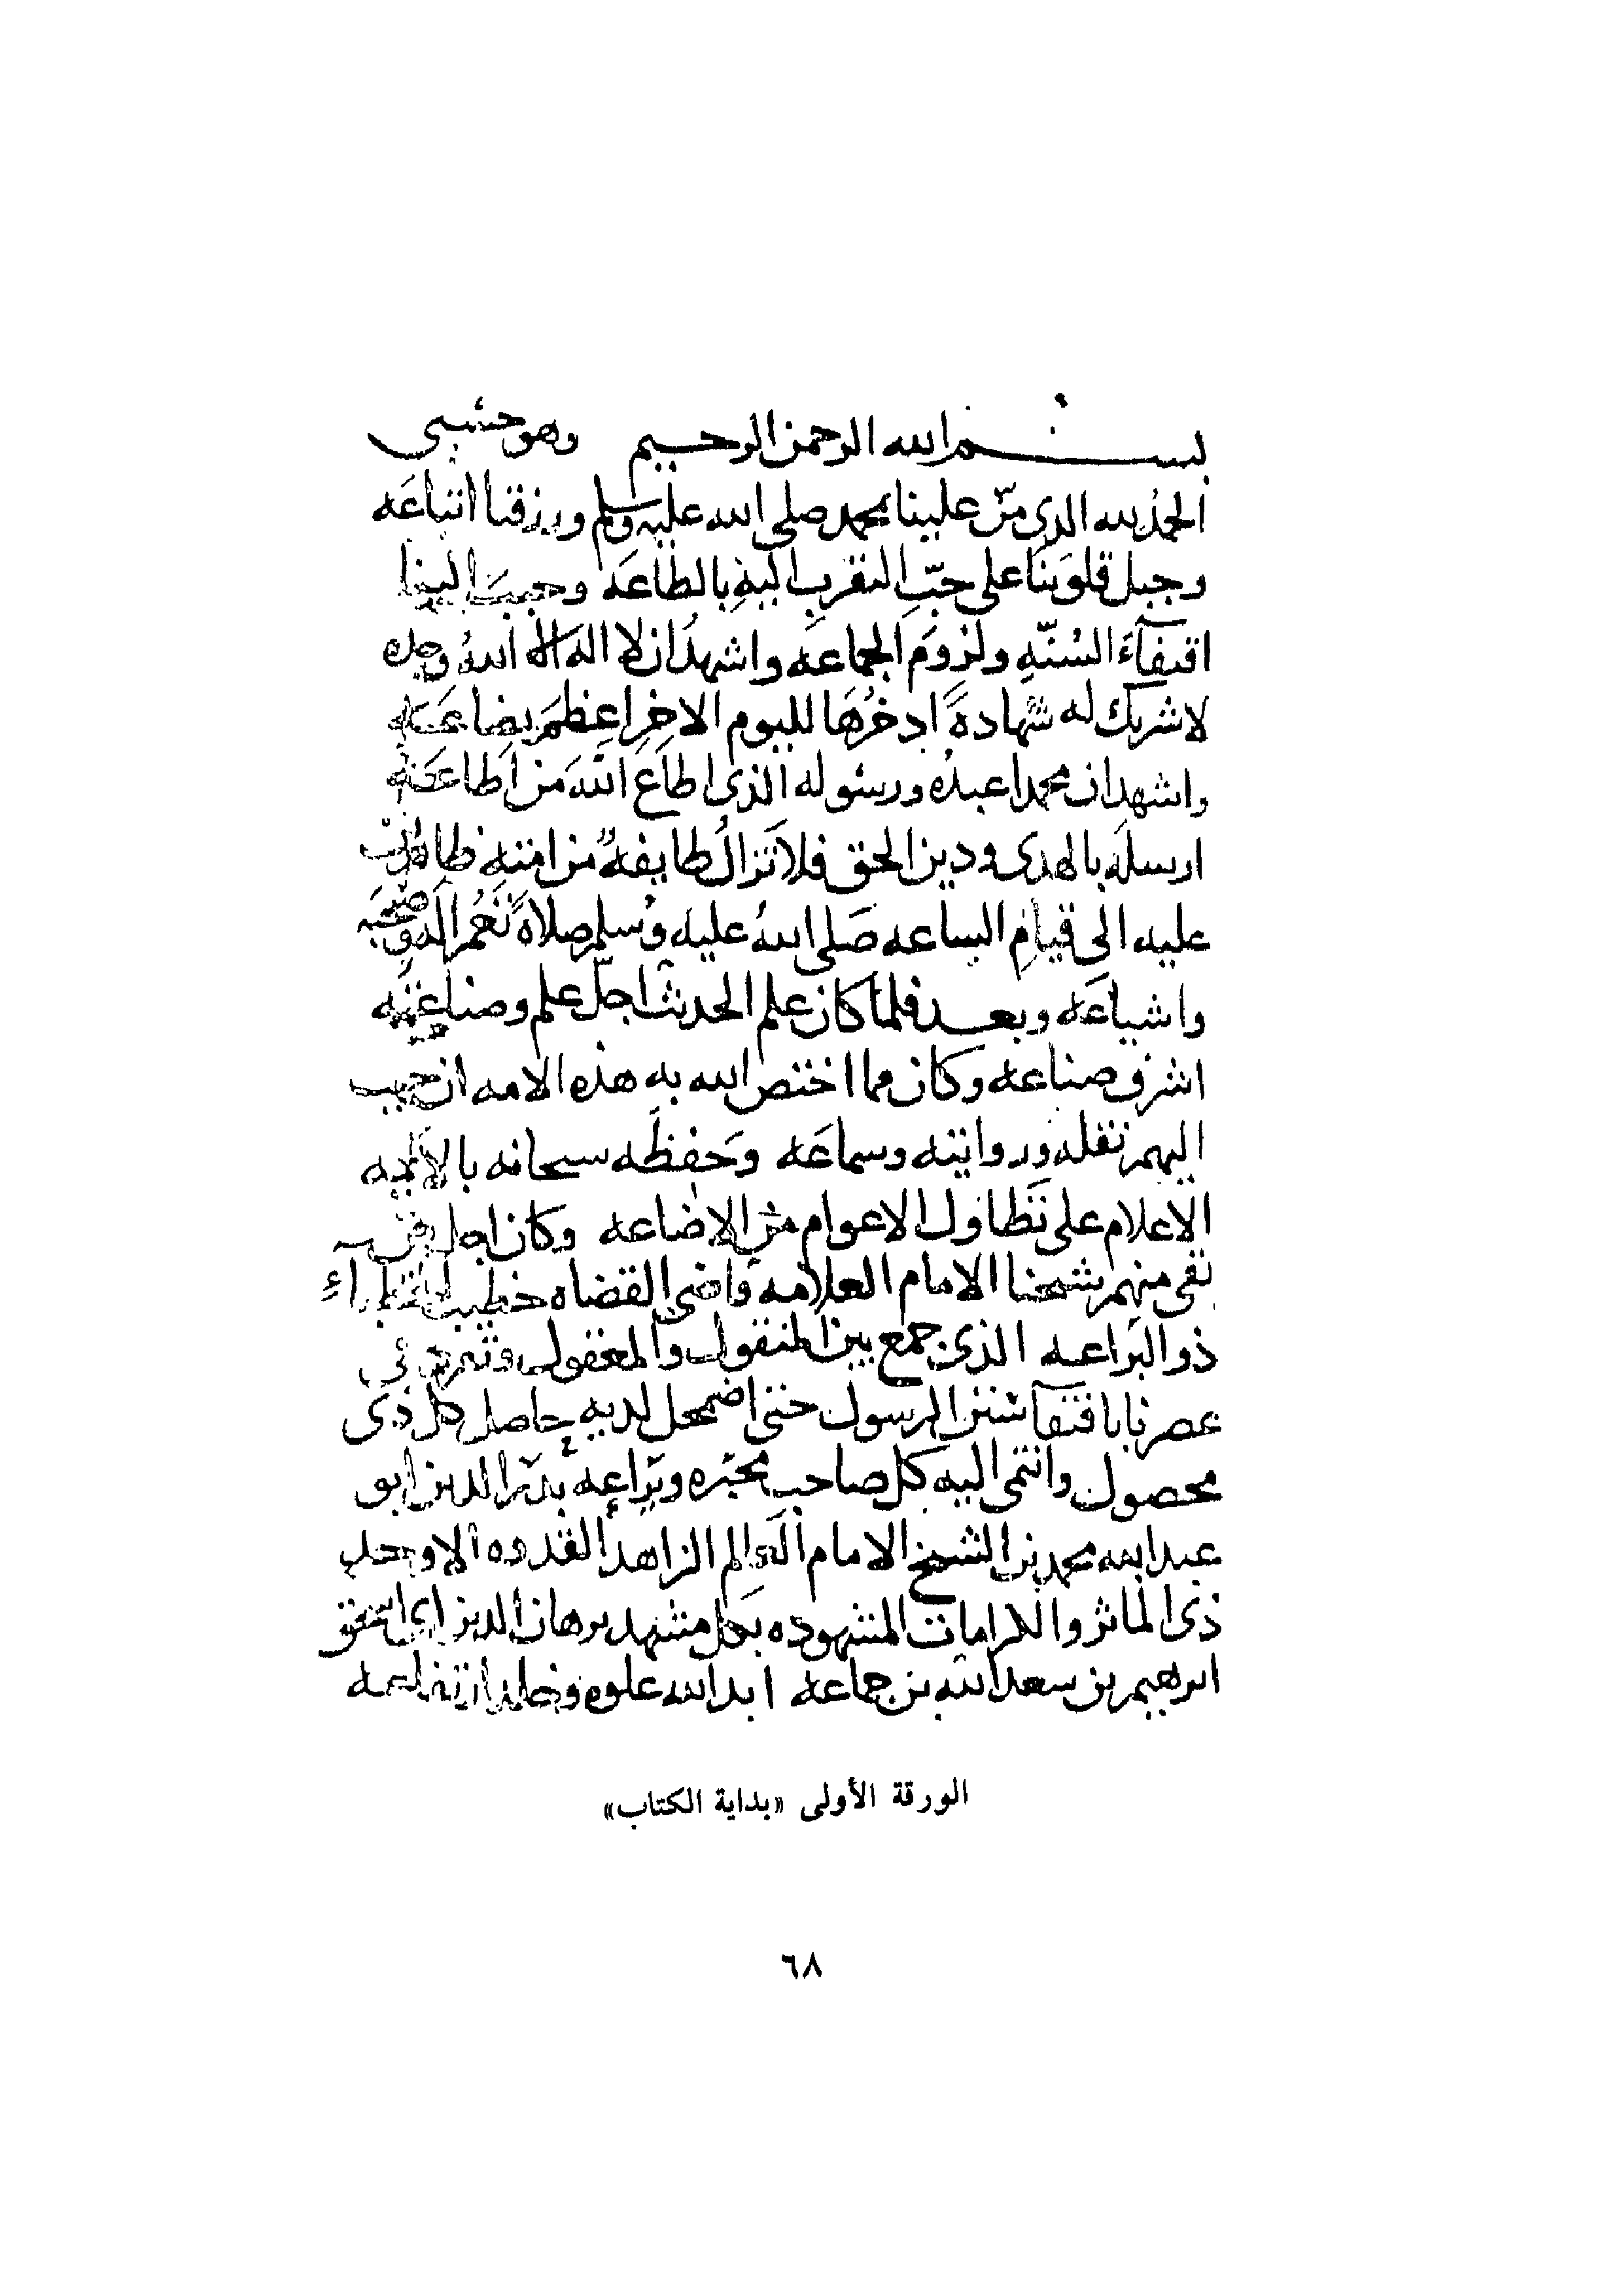 بسم الله الرحمن الرحيم وهو حسبي
الحمد لله الذي منّ علينا بمحمد صلى الله عليه وسلم ورزقنا اتباعَه
وجبل قلوبنا على حبّ التقرب اليهِ بالطاعَه وحببَ الينا
اقتفآءَ السُنّهِ ولزومَ الجماعه واشهدُ ان لا اله الا اللهُ وحده
لا شريك له شهادةً ادخرُهَا لليوم الاخِرِ اعظمَ بضاعَه
واشهد ان محمدا عبدُه ورسُوله الذي اطاعَ اللهَ من اطاعَه
ارسلَه بالهدى ودين الحق فلا تَزالُ طايفهٌ من امته ظاهرين
عليه الى قيامِ الساعه صَلى اللهُ عليه وسلم صلاةً تَعُم اله وصحبَه
واشياعَه وبعد فلما كان علم الحديث اجلّ علم وصناعته
اشرف صناعه وكان مما اختص الله به هذه الامه ان حبب
اليهم نقله وروايته وسماعَه وحَفِظَه سبحانه بالايمه
الاعلام على تَطاول الاعوام من الاضاعه وكان اجل من
بقى منهم شيخنا الامام العلامه قاضي القضاه خطيب الخطبآءِ
ذو البراعه الذي جمع بين المنقول والمعقول وتميز في
عصرنا باقتفآ سُنن الرسول حتى اضمحل لديه حاصل كل ذي
محصول وانتمى اليه كل صاحب محبَره ويَراعه بدر الدين ابو
عبد الله محمد بن الشيخ الامام العالم الزاهد القدوه الاوحد
ذي الماثر والكرامات المشهوده بكل مشهد برهان الدين ابي اسحق
ابرهيم بن سعد الله بن جماعه ابد الله علوه وخلد ارتفاعه
الورقة الأولى «بداية الكتاب»
٦٨